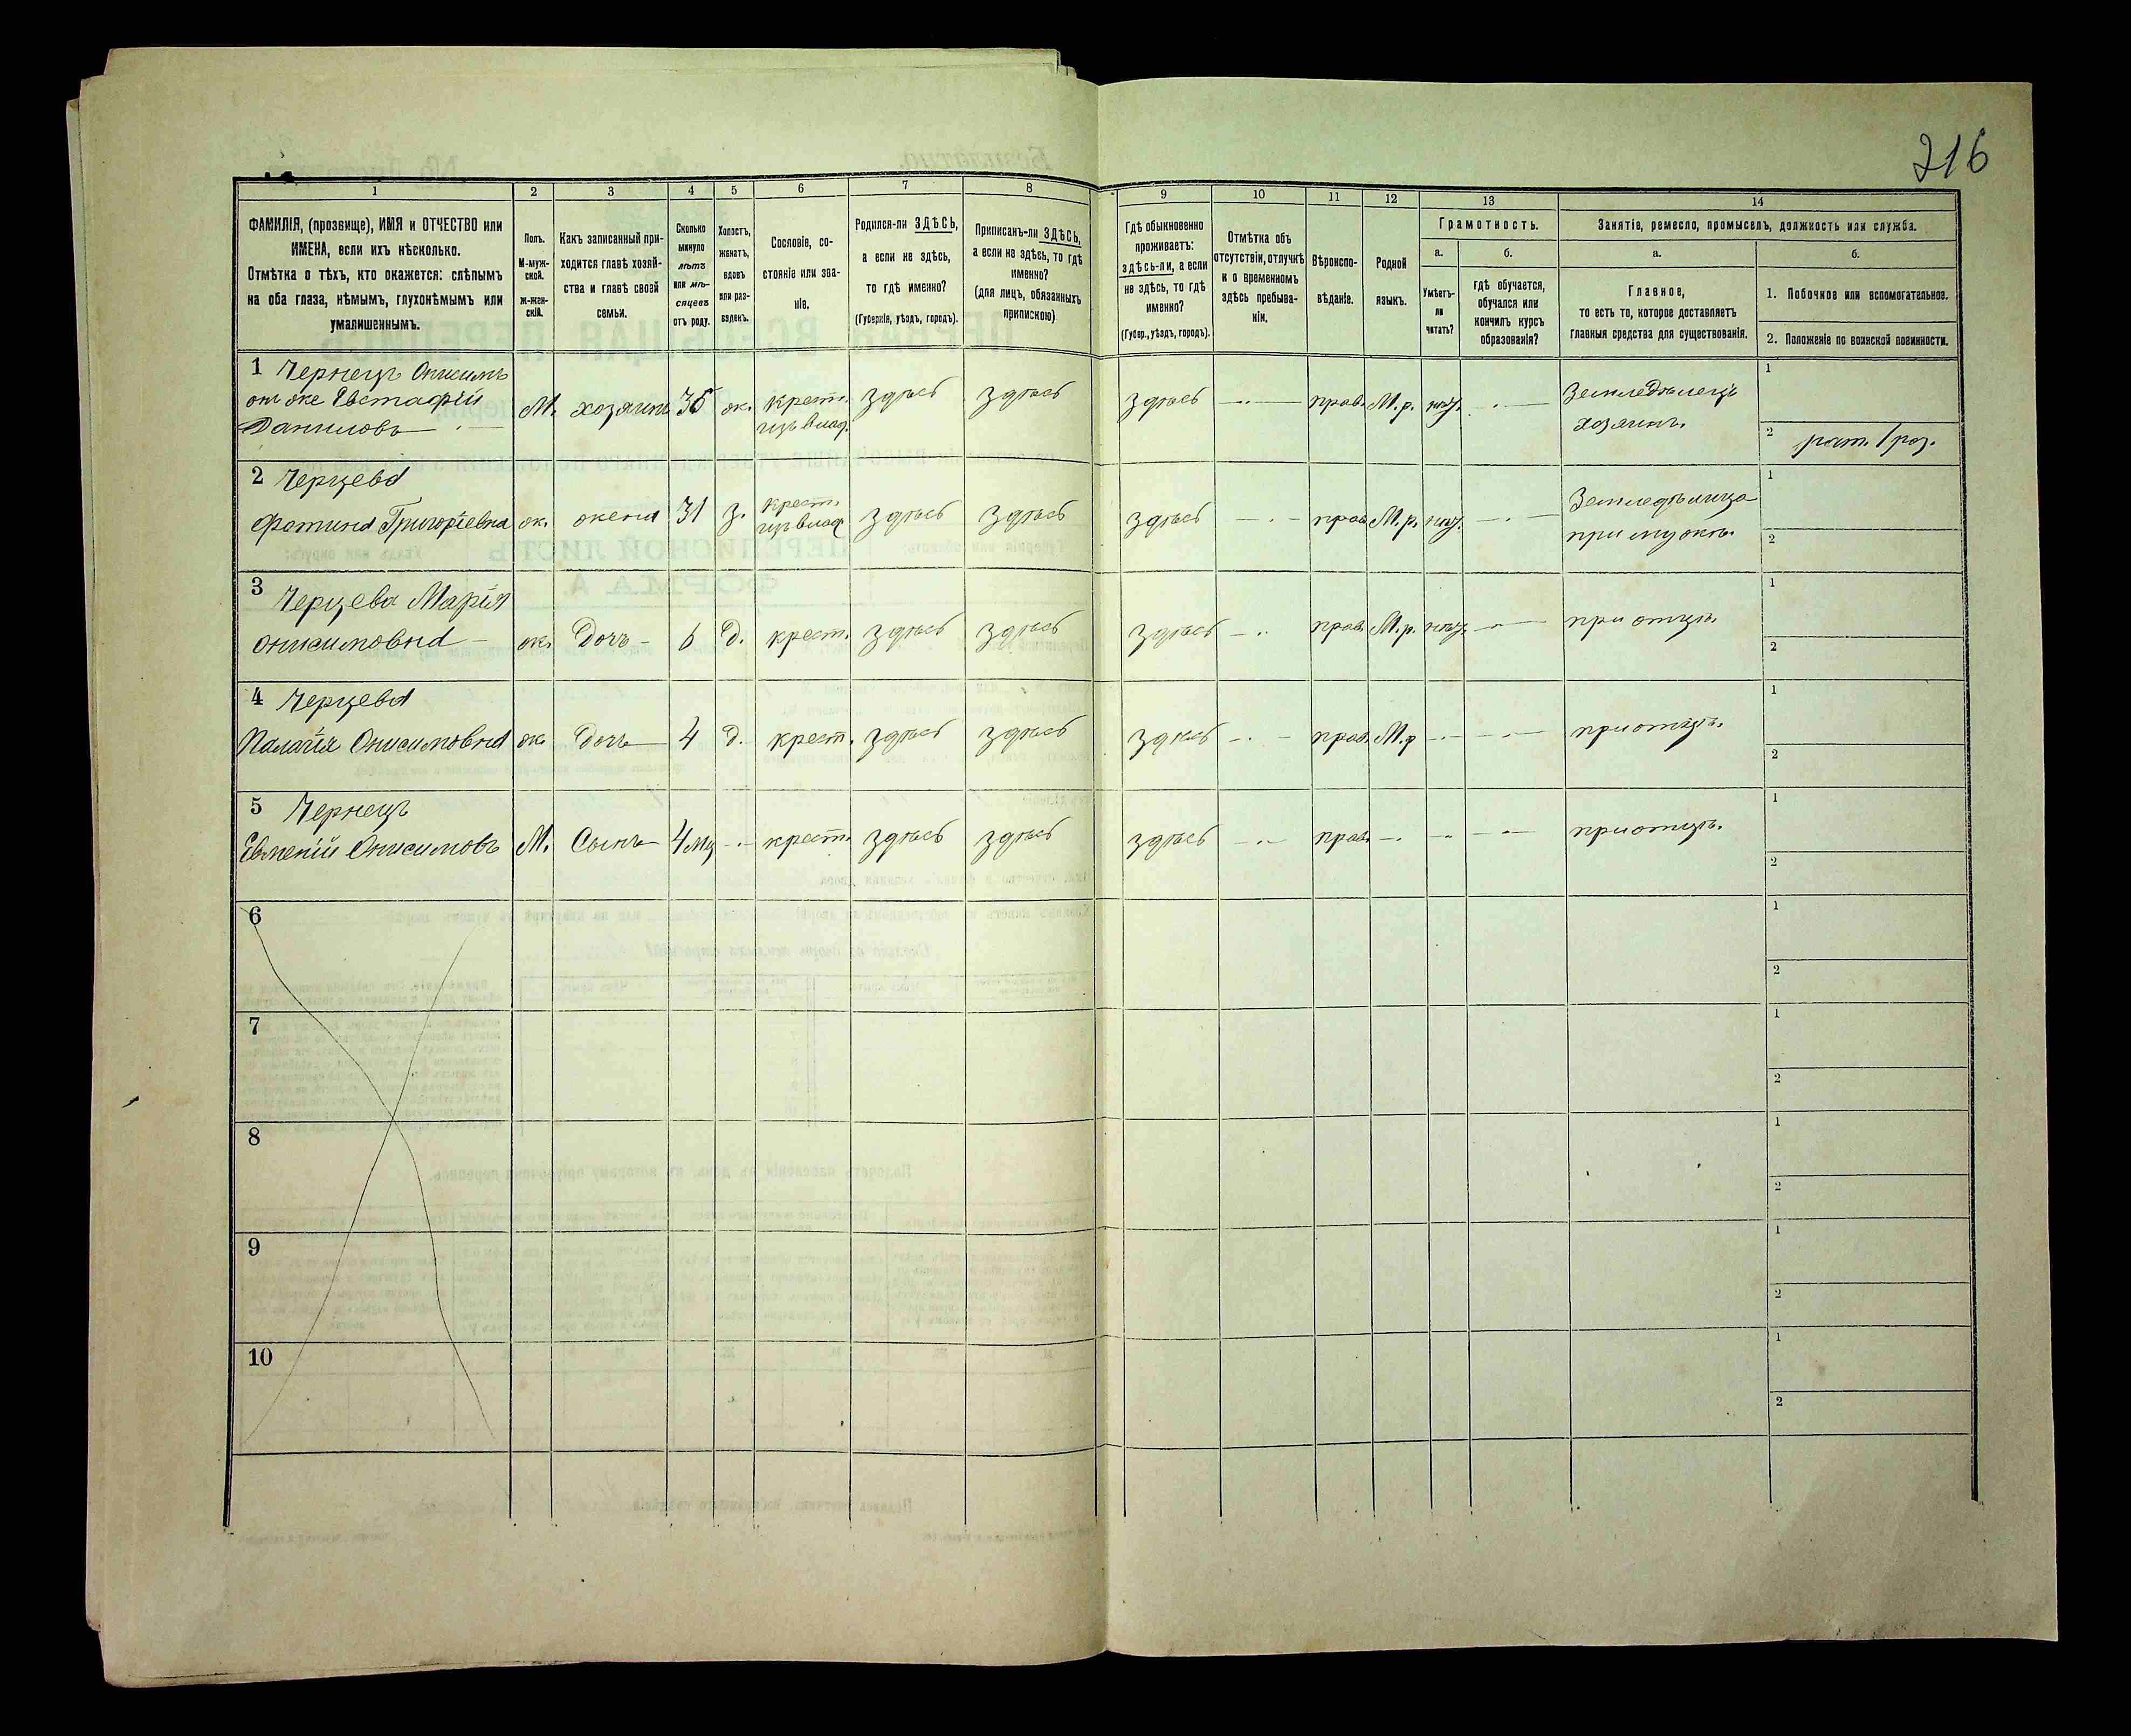 216
1 2 3 4 5 6 7 8 9 10 11 12 13 14
ФАМИЛІЯ, (прозвище), ИМЯ и ОТЧЕСТВО или
ИМЕНА, если ихъ нѣсколько.
Отмѣтка о тѣхъ, кто окажется: слѣпымъ
на оба глаза, нѣмымъ, глухонѣмымъ или
умалишеннымъ.
Полъ.
М-муж-
ской.
ж-жен-
скій.
Какъ записанный при-
ходится главѣ хозяй-
ства и главѣ своей
семьи.
Сколько
минуло
лѣтъ
или мѣ-
сяцевъ
отъ роду.
Холостъ,
женатъ,
вдовъ
или раз-
веденъ.
Сословіе, со-
стояніе или зва-
ніе.
Родился-ли ЗДѢСЬ,
а если не здѣсь,
то гдѣ именно?
(Губернія, уѣздъ, городъ).
Приписанъ-ли ЗДѢСЬ,
а если не здѣсь, то гдѣ
именно?
(для лицъ, обязанныхъ
припискою)
Гдѣ обыкновенно
проживаетъ:
здѣсь-ли, а если
не здѣсь, то гдѣ
именно?
(Губер., уѣздъ, городъ).
Отмѣтка объ
отсутствіи, отлучкѣ
и о временномъ
здѣсь пребыва-
ніи.
Вѣроиспо-
вѣданіе.
Родной
языкъ.
Грамотность.
а.
Умѣетъ-
ли
читать?
б.
гдѣ обучается,
обучался или
кончилъ курсъ
образованія?
Занятіе, ремесло, промыселъ, должность или служба.
а.
Главное,
то есть то, которое доставляетъ
главныя средства для существованія.
б.
1. Побочное или вспомогательное.
2. Положеніе по воинской повинности.
1 Чернецъ Онисимъ
онъ же Евстафій
Даниловъ
М. хозяинъ 35 ж. крест.
изъ влад.
здѣсь здѣсь здѣсь — прав. М.р. нѣт. —
Земледѣлецъ
хозяинъ.
1
2 рат. 1 раз.
2 Черцева
Фотина Григорѣевна
ж. жена 31 з. крест.
изъ влад.
здѣсь здѣсь здѣсь — прав М.р. нѣт. —
Земледѣлица
при мужѣ.
1
2
3 Черцева Марія
Онисимовна —
ж. Дочь — 6 Д. крест. здѣсь здѣсь здѣсь — прав. М.р. нѣт. — при отцѣ.
1
2
4 Черцева
Палагія Онисимовна ж. Дочь — 4 Д. крест. здѣсь здѣсь здѣсь — прав. М.р — — при отцѣ.
1
2
5 Чернецъ
Евменій Онисимовъ М. Сынъ 4 мц — крест. здѣсь здѣсь здѣсь — прав. — — — при отцѣ.
1
2
6
1
2
7
1
2
8
1
2
9
1
2
10
1
2